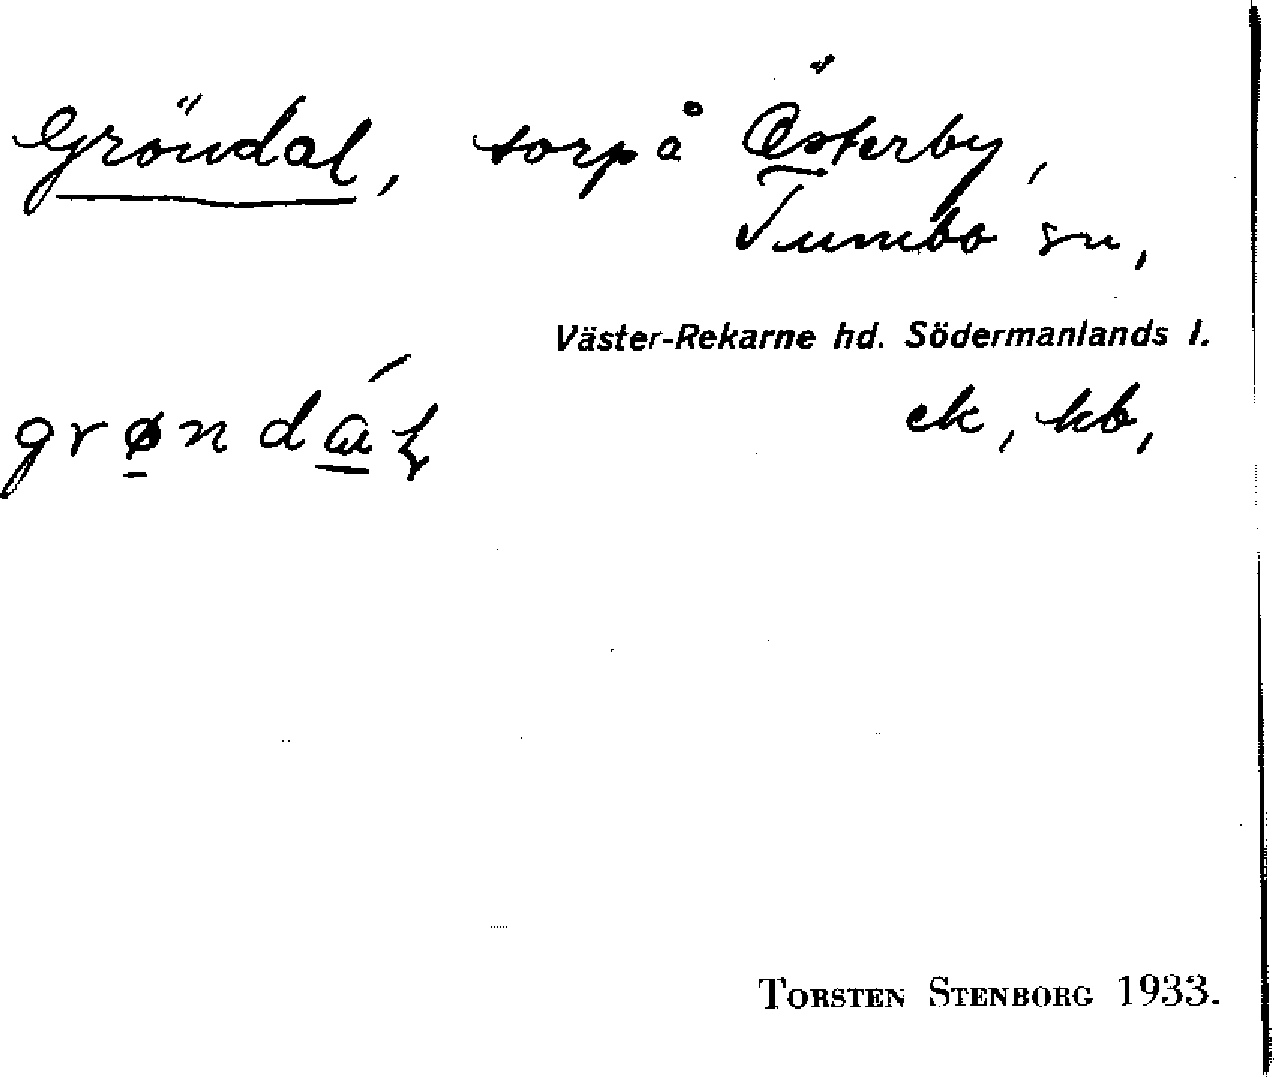 Gröndal, torp å Österby,
Tumbo sn,
Väster-Rekarne hd. Södermanlands l.
ek, kb,
TORSTEN STENBORG 1933.